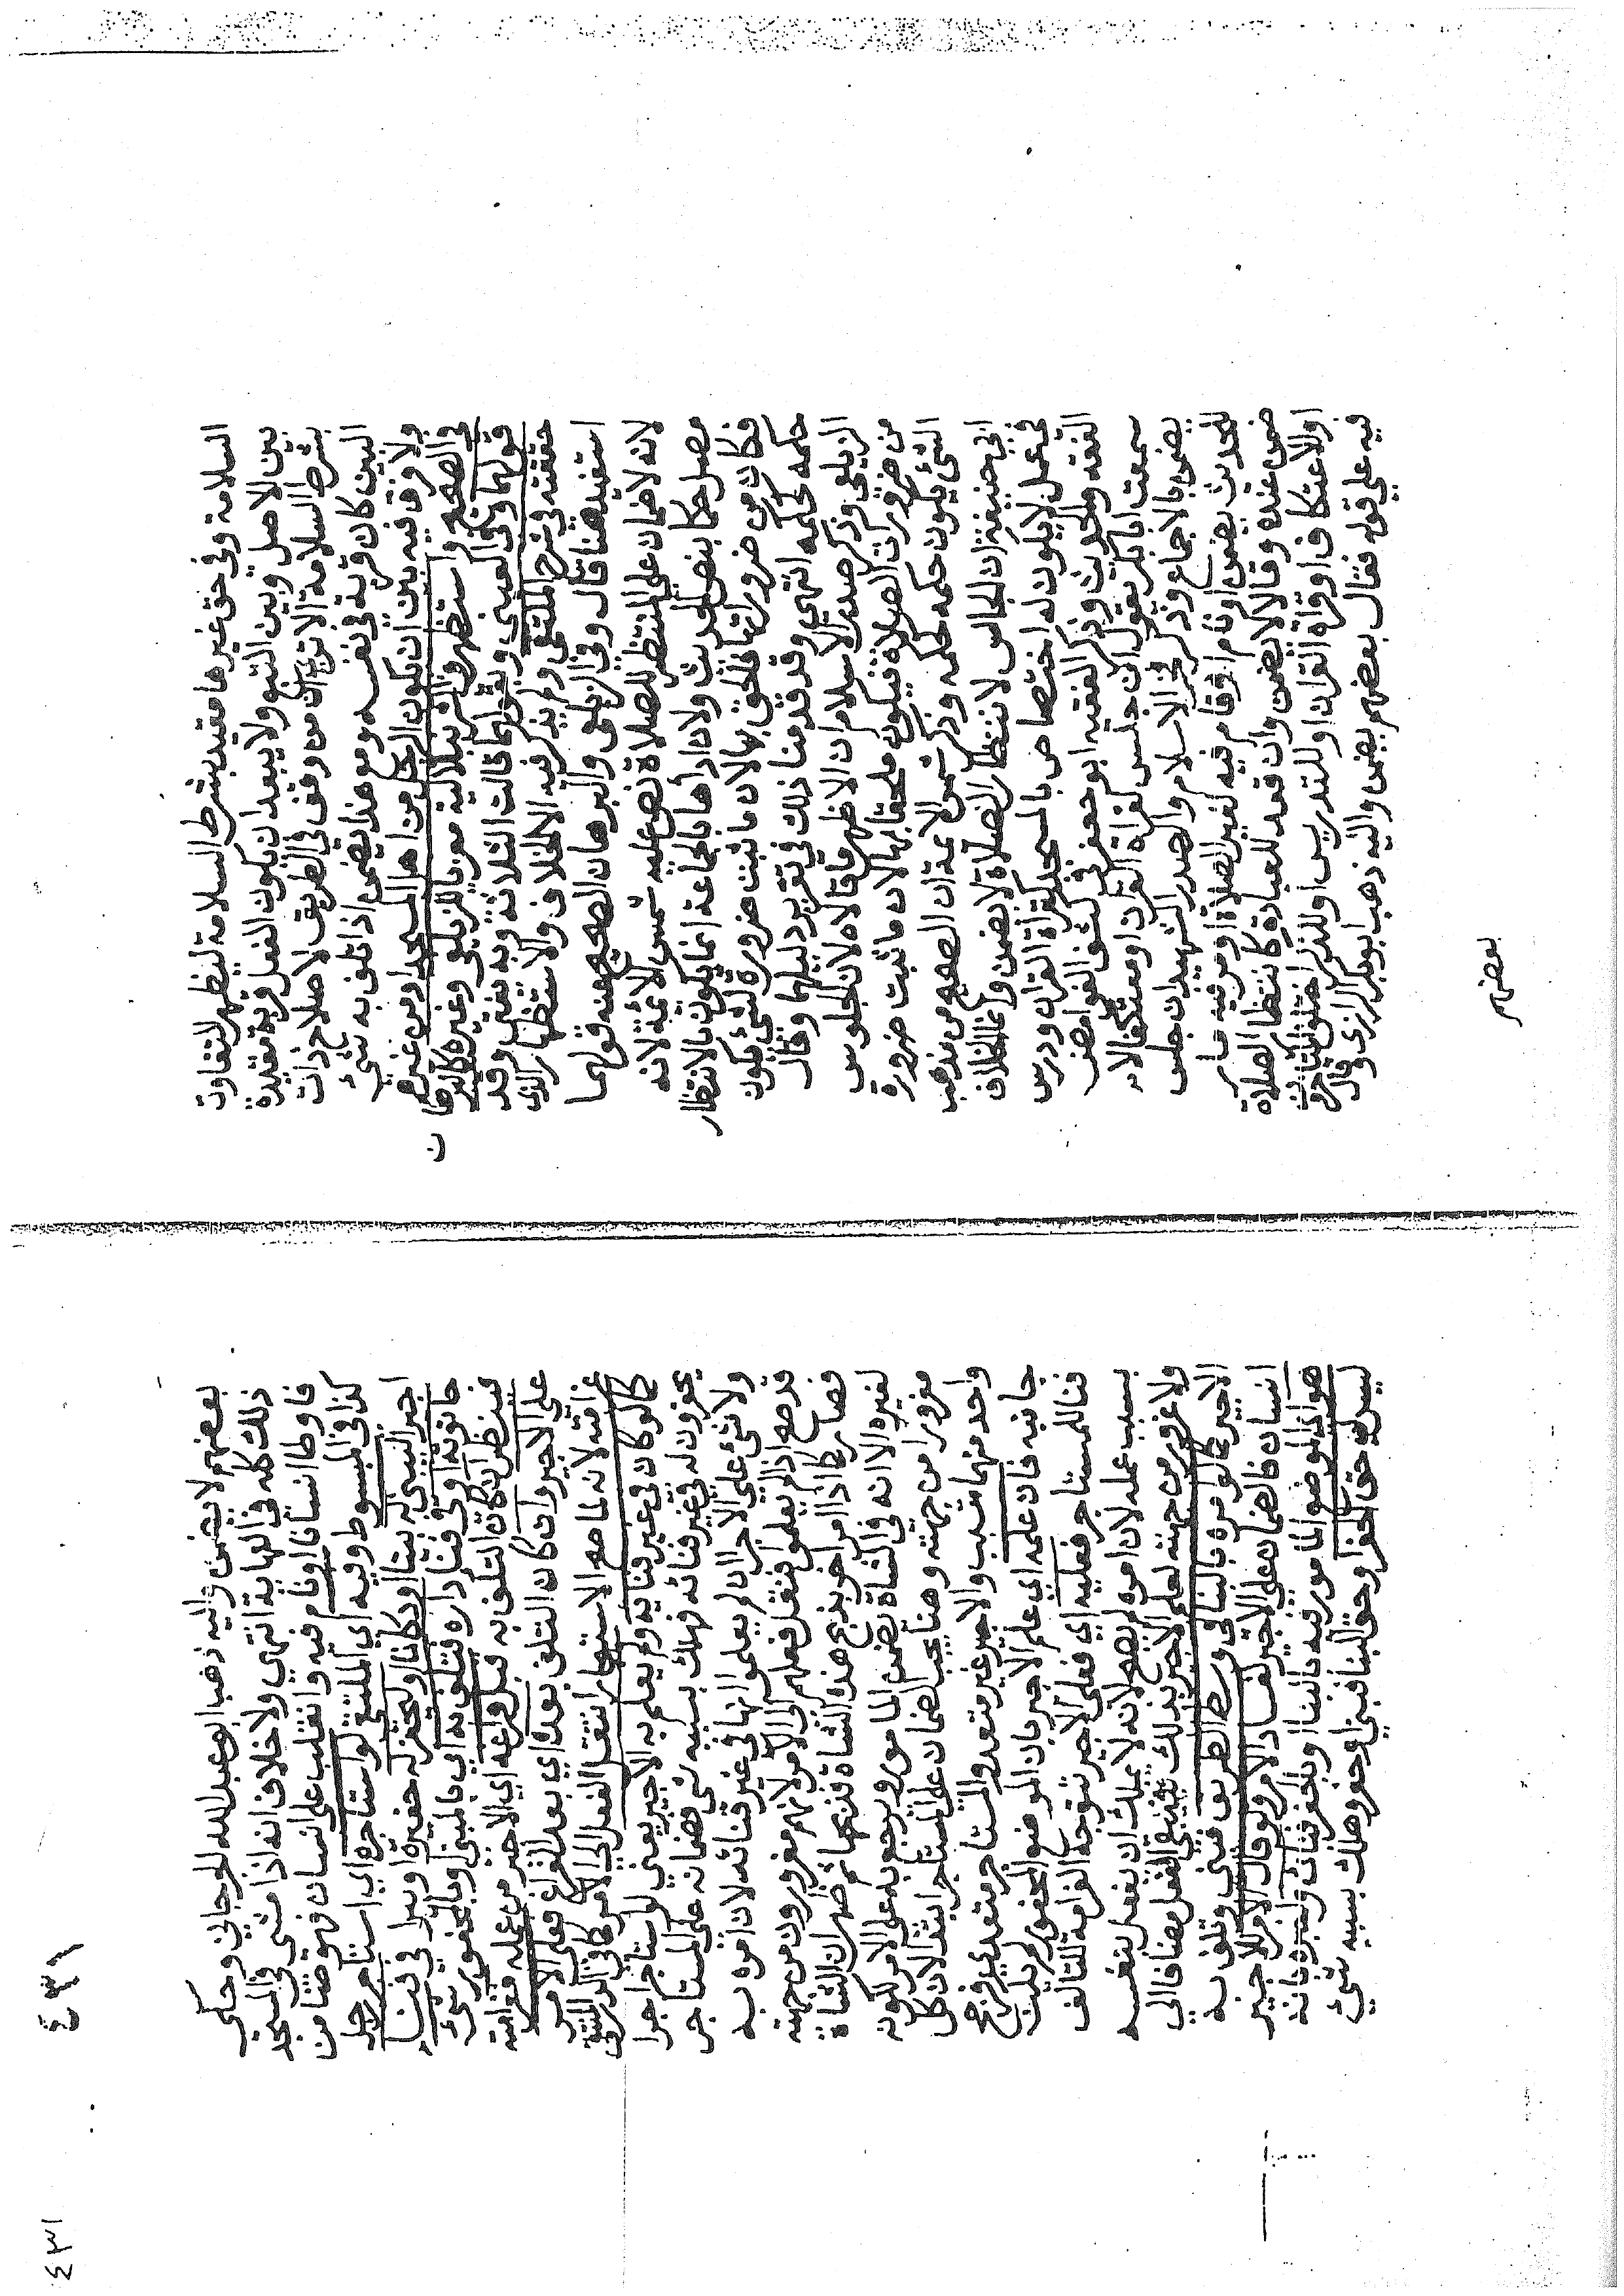 السلامة وفي حق غيرها مقيد بشرط السلامة ليظهر التفاوت
بين الاصل وبين التبع ولا يبعد ان يكون الفعل قربة مقيدة
بشرط السلامة الا ترى ان من وقف في الطريق لاصلاح ذات
البين كان قربة في نفسه ومع هذا يضمن اذا تلف به شيء
ولا فرق فيه بين ان يكون الجالس من اهل المسجد او من غيرهم
في الصحيح واستظهر في الشرنبلالية معزيا للزيلعي وغيره
قولهما وفي العيني وبقولهما قالت الثلاثة وبه يفتى وقد
حققته في شرح الملتقى ولم يذكر فيه الا الخلاف والاستظهار الذي
استفيد هنا قال وفي الزيلعي والبرهان الصحيح عنه قولهما
لانه لا ضمان على المنتظر للصلاة نص عليه شمس الائمة لانه
فصل حكما بنص الحديث ولان اداها بالجماعة انما يكون بالانتظار
فكان من ضروراتها فالحق بها لان ما ثبت ضرورة لشيء يكون
حكمه كحكمه انتهى وقد قدمنا ذلك في تقرير دليلهما وقال
الزيلعي وذكر صدر الاسلام ان الاظهر ما قالاه لان الجلوس
من ضرورات الصلاة فيكون ملحقا بها لان ما ثبت ضرورة
الشيء يكون حكمه حكمه وذكر شمس الائمة ان الصحيح من مذهب
ابي حنيفة ان الجالس لانتظار الصلاة لا يضمن وانما الخلاف
في عمل لا يكون له اختصاص بالمسجد كقراة القران ودرس
الفقه والحديث وذكر الفقيه ابو جعفر في كشف الغوامض
سمعت ابا بكر يقول ان جلس لقراة القران او معتكفا لا
يضمن بالاجماع وذكر فخر الاسلام والصدر الشهيد ان جلس
للحديث يضمن او نام او قام فيه لغير الصلاة او مر فيه مار
ضمن عنده وقالا لا يضمن وان قعد للعبادة كانتظار الصلاة
او الاعتكاف او قراة القران او للتدريس او للذكر اختلف المتاخرون
فيه على قوله فقال بعضهم يضمن واليه ذهب ابو بكر الرازي وقال
بعضهم
بعضهم لا يضمن واليه ذهب ابو عبد الله الجرجاني وحكي
ذلك كله في النهاية انتهى ولا خلاف انه اذا مشى في المسجد
فاوطا انسانا او نام فيه وانقلب على انسان فهو ضامن
كذا في المبسوط وفيه اي الملتقى لو استاجره اي استاجر رجل
اجيرا ليبني له بيتا او دكانا او ليحفر له حفيرة او بيرا في فناء
حانوته او في فناء داره فتلف به اي بالمبنى وبالمحفور شيء
فينظر ان كان التلف به قبل فراغه اي الاجير من عمله فغرامته
على الاجير وان كان التلف بعده اي بعد الفراغ فعلى الآمر
غرامته لانه لما صح الاستيجار انتقل الفعل الى الآمر كما في
كما لو كان في غير فنايه ولم يعلم به الاجير يعني لو استاجر اجرا
يحفرون له في غير فنائه فهلك بسببه شيء ضمانه على المستاجر
ولا شيء على الاجرا ان لم يعلموا انها في غير فنائه لان امره به
قد صح اذا لم يعلموا فنقل فعلهم الى الآمر لانهم مغرورون من جهته
فصار كما اذا امر اخر بذبح هذه الشاة فذبحها ثم ظهر ان الشاة
لغيره الا انه في الشاة يضمن المامور ويرجع به على الآمر لكونه
مغرورا من جهته وهنا يجب الضمان على المستاجر ابتداء لان كل
واحد منهما متسبب والاجير غير متعد والمستاجر متعد فيرجح
جانبه فان علمه اي علم الاجير بان الموضع المحفور لم يكن
فنا للمستاجر فعليه اي فعلى الاجير تتوجه الغرامة للتالف
بسبب عمله لان امره لم يصح لانه لا يملك ان يفعل بنفسه
ولا غرور من جهته لعلم الاجير بذلك فبقي الفعل مضافا الى
الاجير كما لو امره بالبناء في وسط الطريق فبنى وتلف به
انسان فالضمان على الاجير لفساد الامر ولو قال الآمر للاجير
هو اي الموضع المامور فيه بالبنا او بالحفر فنائي
ليس لي فيه حق الحفر وحق البنا فبنى او حفر وهلك بسببه شيء
٤٣١
٤٣١